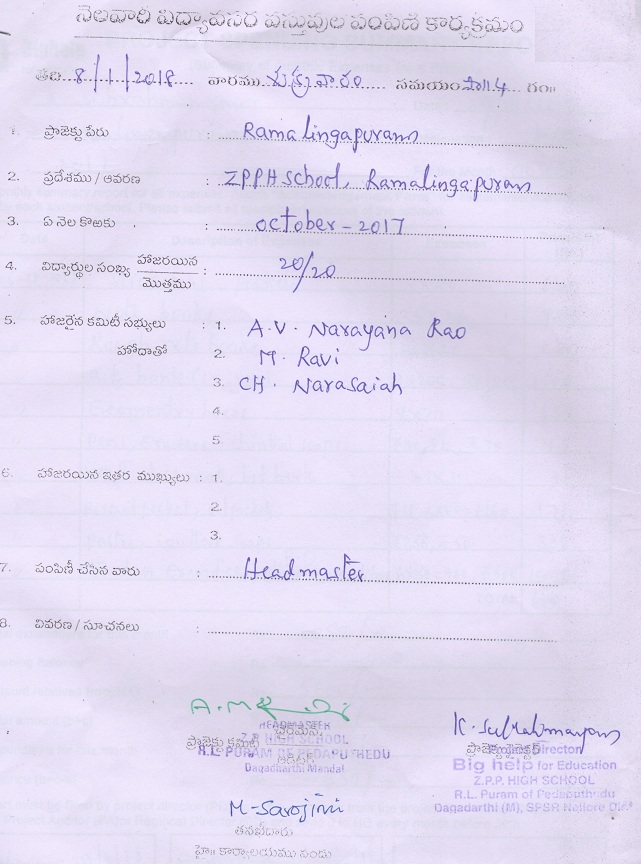 నెలవారి విద్యావసర వస్తువుల పంపిణీ కార్యక్రమం
తేది: 8/1/2018 వారము శుక్రవారం సమయం గం॥
1. ప్రాజెక్టు పేరు : Ramalingapuram
2. ప్రదేశము / ఆవరణ : ZPPH School, Ramalingapuram
3. ఏ నెల కొఱకు : October - 2017
4. విద్యార్థుల సంఖ్య హాజరయిన / మొత్తము : 20/20
5. హాజరైన కమిటీ సభ్యులు : 1. A.V. Narayana Rao
హోదాతో 2. M. Ravi
3. CH. Narasaiah
4.
5.
6. హాజరయిన ఇతర ముఖ్యులు : 1.
2.
3.
7. పంపిణీ చేసిన వారు : Headmaster
8. వివరణ / సూచనలు :
HEADMASTER
ప్రాజెక్టు కమిటీ
Z.P. HIGH SCHOOL
R.L. PURAM OF PEDAPUTHEDU
Dagadharthi Mandal
K. Subrahmanyam
ప్రాజెక్టు డైరెక్టర్
Director
Big help for Education
Z.P.P. HIGH SCHOOL
R.L. Puram of Pedaputhedu
Dagadarthi (M), SPSR Nellore Dist
M. Sarojini